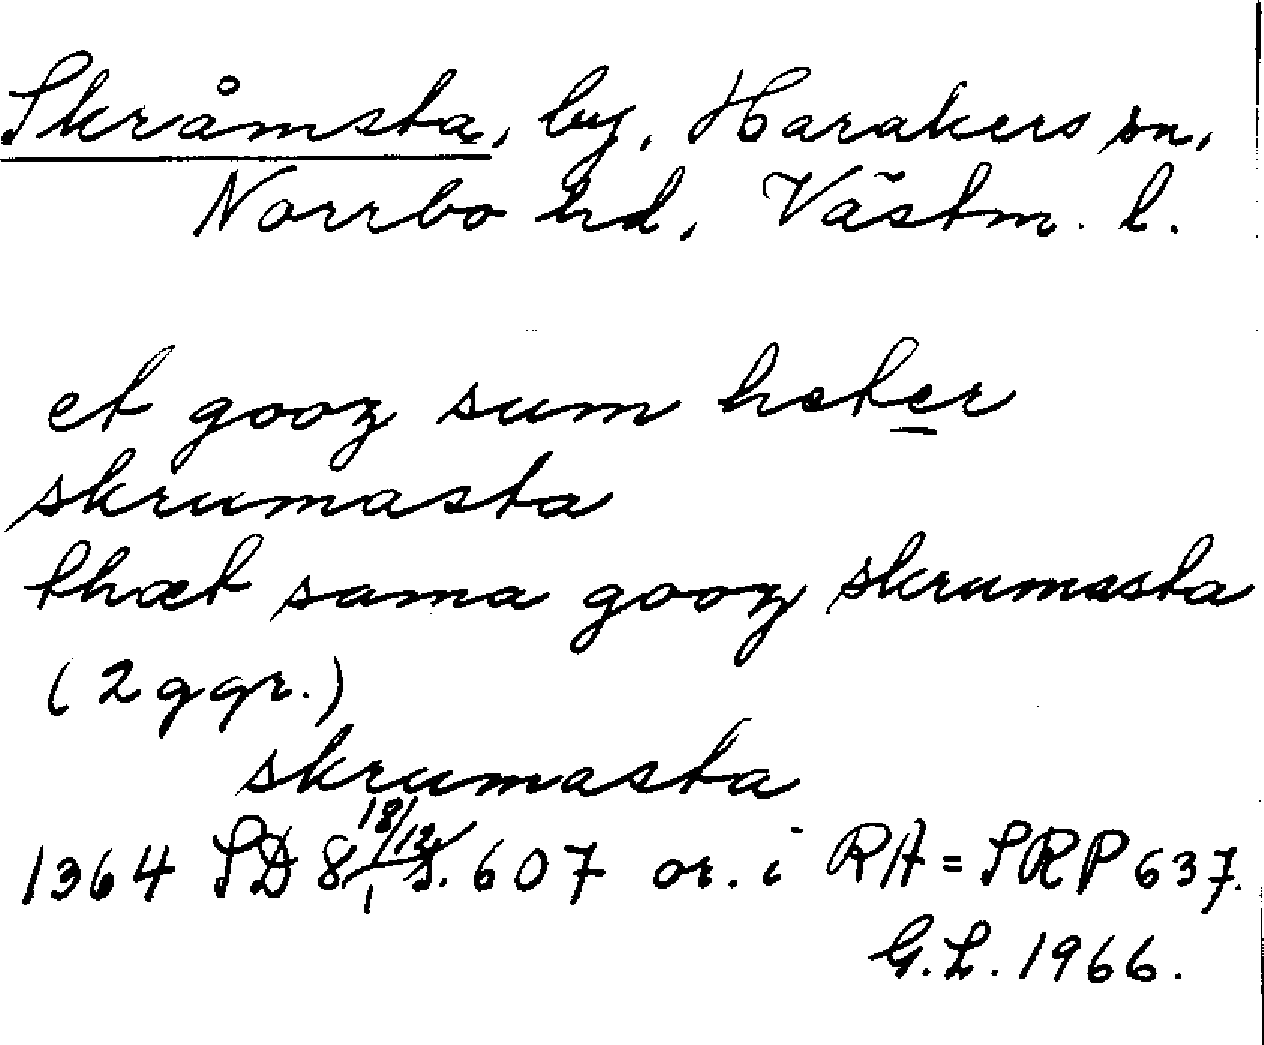 Skråmsta, by, Harakers sn,
Norrbo hd, Västm. l.
et gooz sum heter
skrumasta
thæt sama gooz skrumasta
(2 ggr.)
skrumasta
1364 18/12 SD 8/1 s. 607 or. i RA = SRP 637.
G.L. 1966.